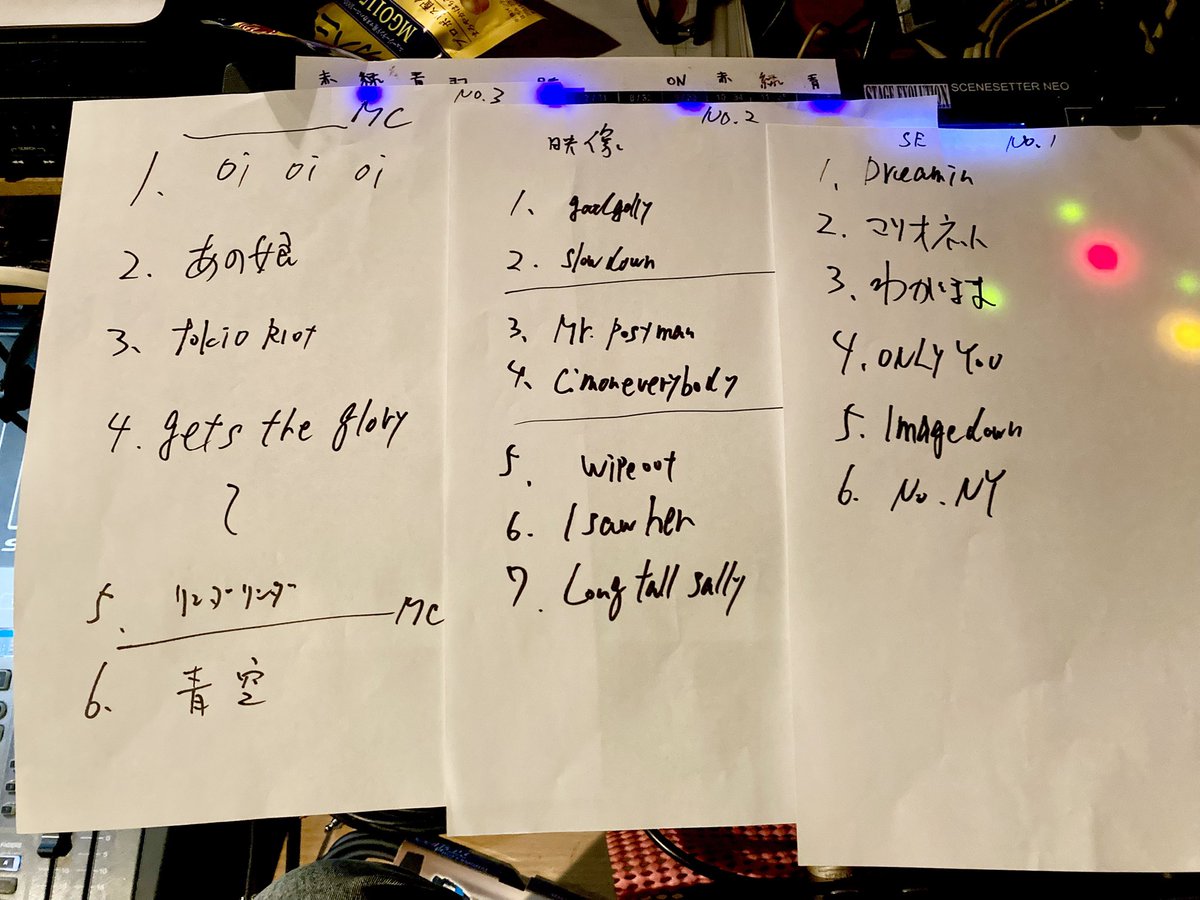 MG011
プロポリス
赤 緑 青
ON 赤 緑 青
STAGE EVOLUTION SCENESETTER NEO
No.3
MC
1. oi oi oi
2. あの娘
3. tokio Riot
4. gets the glory
5. リンダーリンダー
MC
6. 青空
No.2
映像
1. goodgolly
2. Slowdown
3. Mr. Postman
4. C'moneverybody
5. Wipeout
6. I saw her
7. Long tall sally
SE No.1
1. Dreamin
2. マリオネット
3. わがまま
4. ONLY YOU
5. Imagedown
6. No. NY